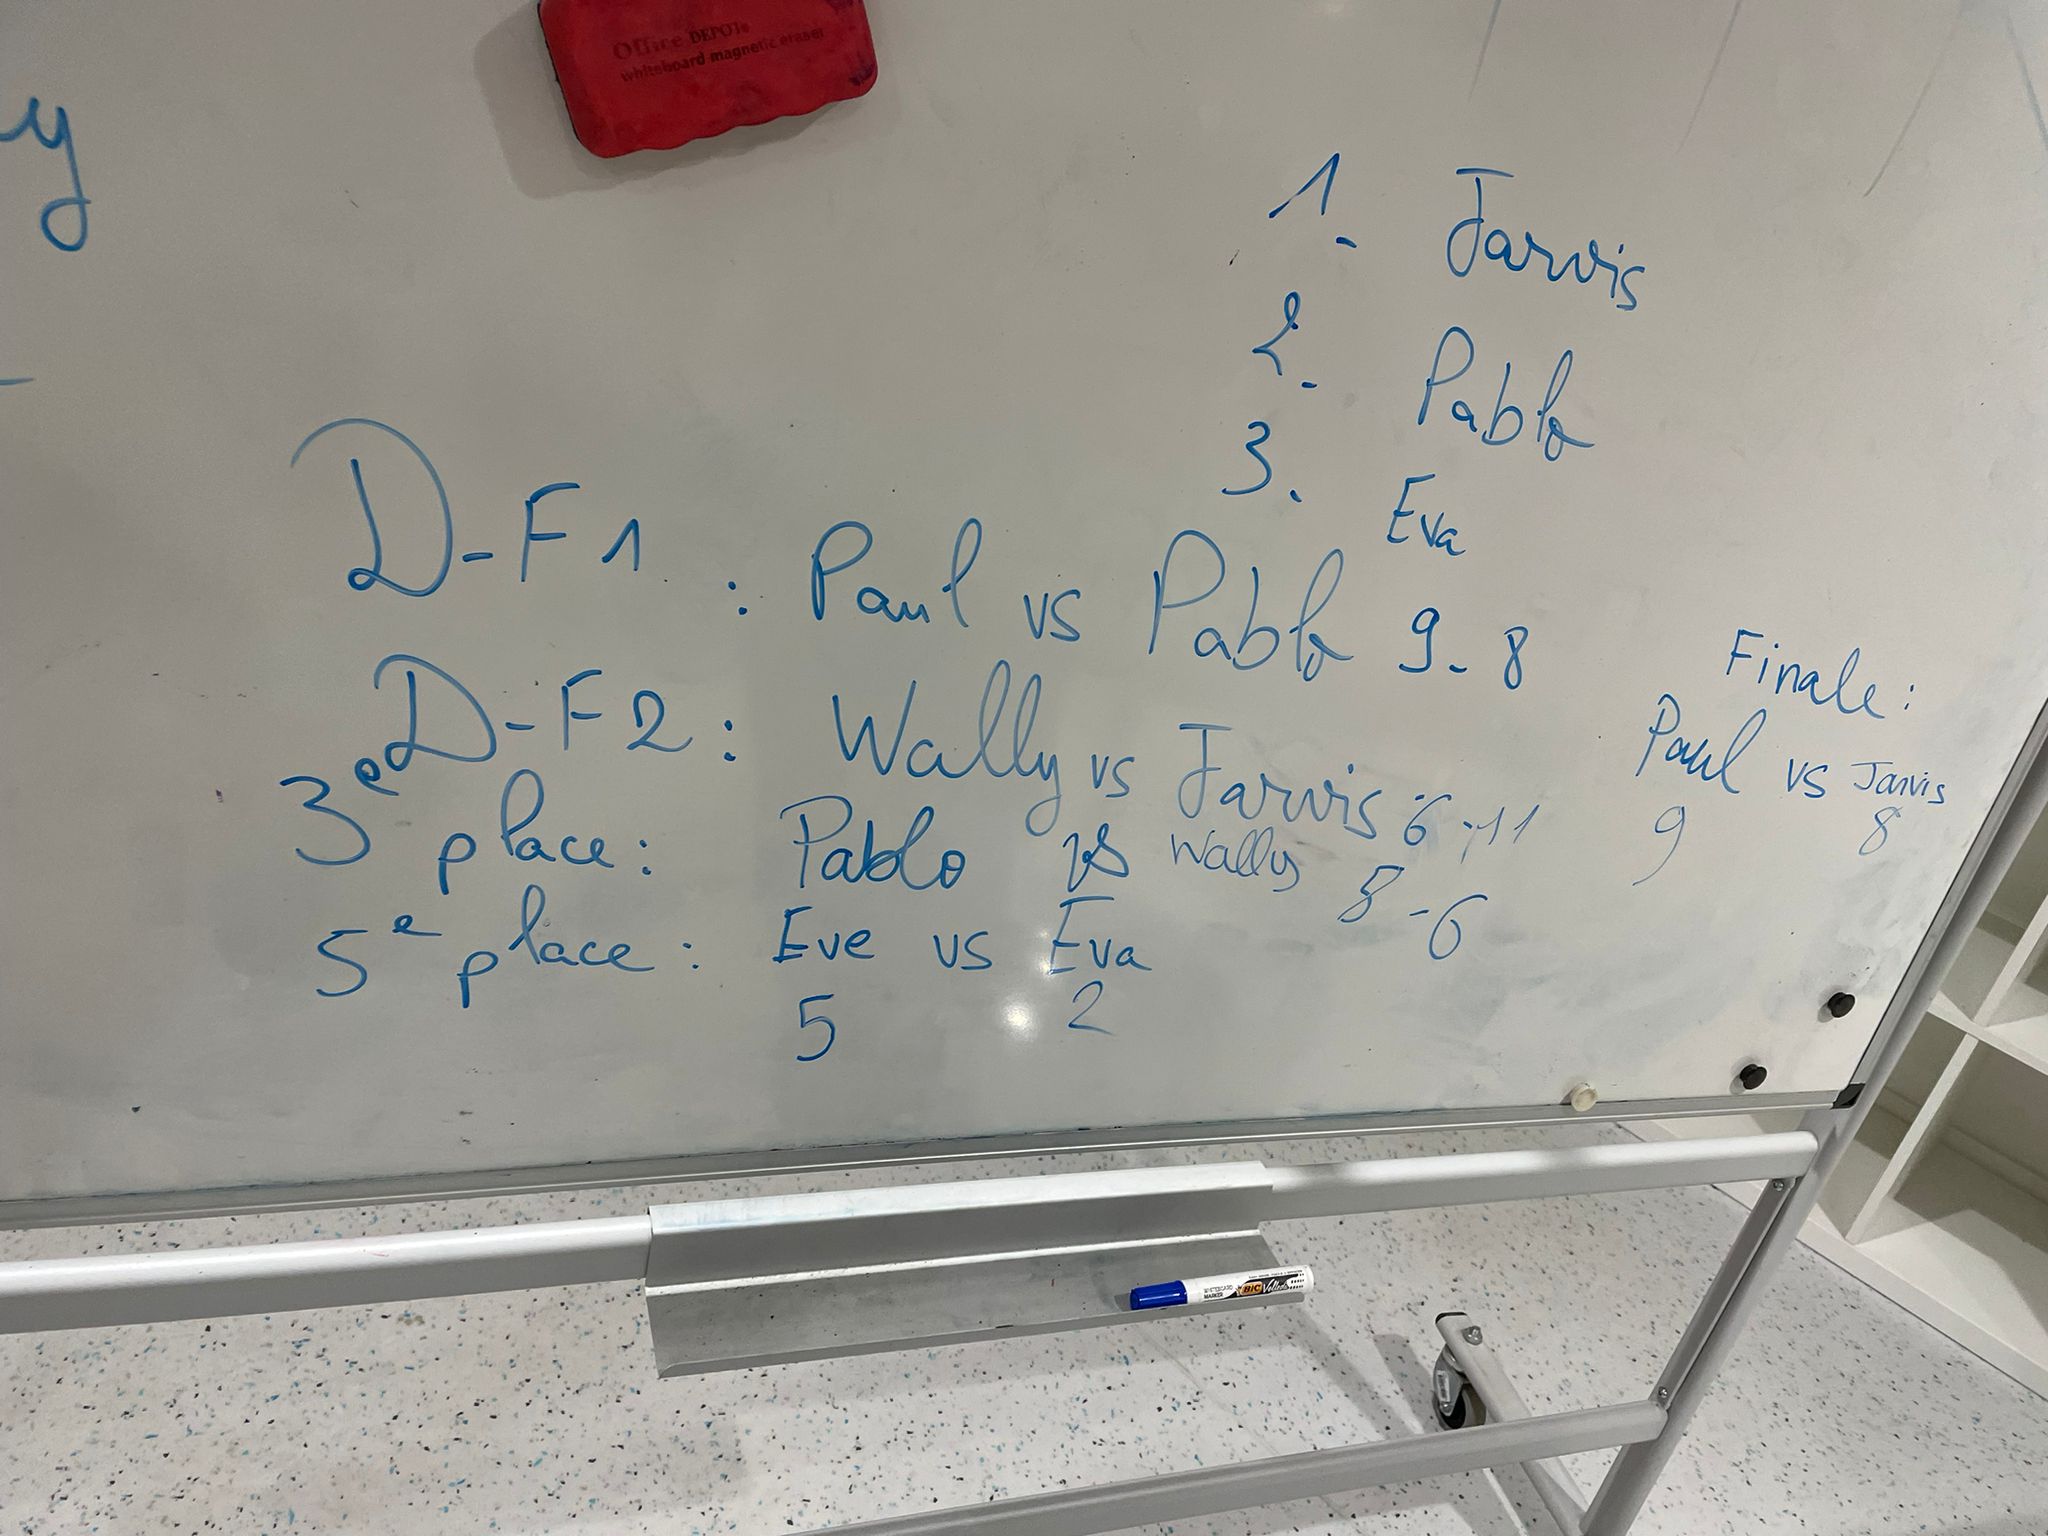 Office DEPOT
whiteboard magnetic eraser
y
1. Jarvis
2. Pablo
3. Eva
D-F1 : Paul vs Pablo 9-8
D-F2 : Wally vs Jarvis 6-11
3e place : Pablo vs Wally 8-6
5e place : Eve vs Eva
5 2
Finale :
Paul vs Jarvis
9 8
WHITEBOARD MARKER BIC Velleda